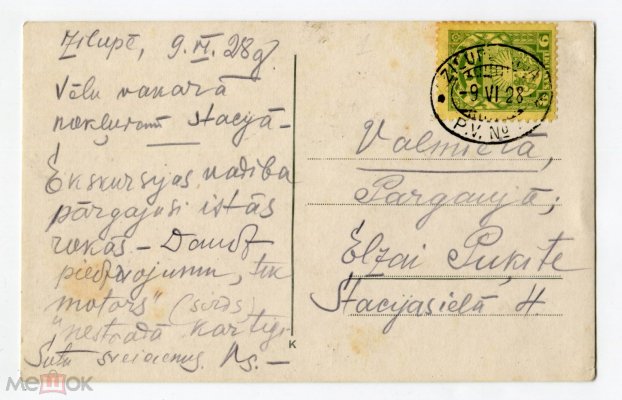 Zilupē, 9. VI. 28g.
Vēlu vakarā
nokļuvām stacijā –
Ekskursijas vadība
pārgājusi īstās
rokās – Daudz
piedzīvojumu, tik
"motors" (sirds)
"nestrādā kārtīgi
Sūtu sveicienus.
Valmierā,
Pārgaujā,
Elzai Puķīte
Stacijasielā 4.
-9 VI 28
P.V. Nº
K
МЕШОК